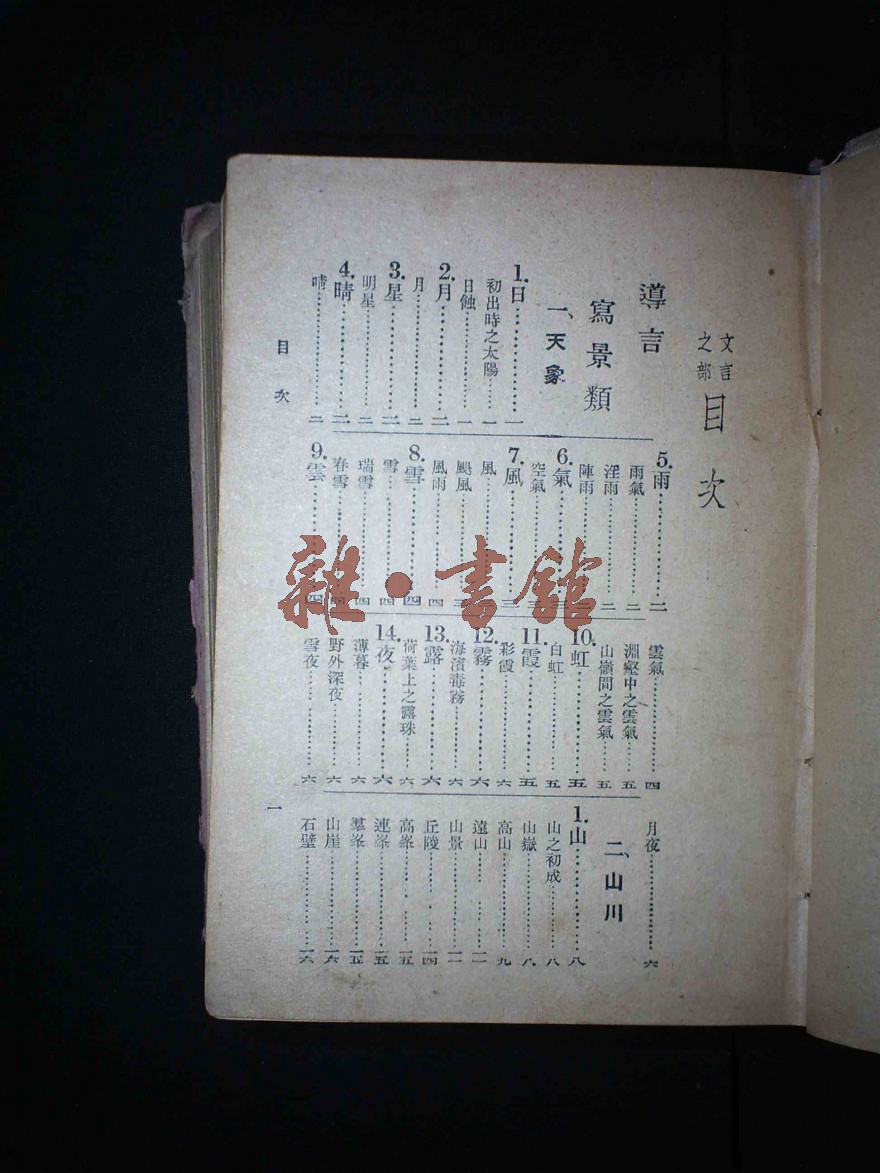 文言
之部
目次
導言
寫景類
一、天象
1.日………一
初出時之太陽……一
日蝕………一
2.月………二
月………二
3.星………二
明星………二
4.晴………二
晴………二
5.雨………二
雨氣………二
淫雨………二
陣雨
6.氣
空氣
7.風
風
颶風
風雨………四
8.雪………四
雪………四
瑞雪………四
春雪………四
9.雲………四
雲氣………四
淵壑中之雲氣……五
山嶺間之雲氣……五
10.虹………五
白虹………五
11.霞………五
彩霞………六
12.霧………六
海濱毒霧………六
13.露………六
荷葉上之露珠……六
14.夜………六
薄暮………六
野外深夜………六
雪夜………六
月夜………六
二、山川
1.山………八
山之初成………八
山嶽………八
高山………九
遠山………一一
山景………一一
丘陵………一四
高峯………一五
連峯………一五
羣峯………一五
山崖………一六
石壁………一六
目次
一
雜·書館